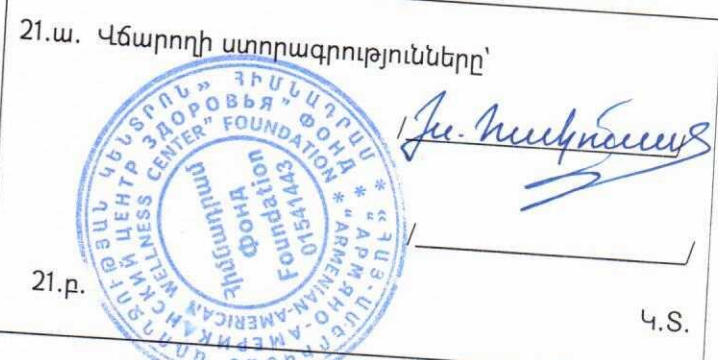 21.ա. Վճարողի ստորագրությունները՝
«ՀԱՅ-ԱՄԵՐԻԿՅԱՆ ԱՌՈՂՋՈՒԹՅԱՆ ԿԵՆՏՐՈՆ» ՀԻՄՆԱԴՐԱՄ *
"АРМЯНО-АМЕРИКАНСКИЙ ЦЕНТР ЗДОРОВЬЯ" ФОНД *
"ARMENIAN-AMERICAN WELLNESS CENTER" FOUNDATION *
Հիմնադրամ
Фонд
Foundation
01541443
/ /
/ /
21.բ.
Կ.Տ.